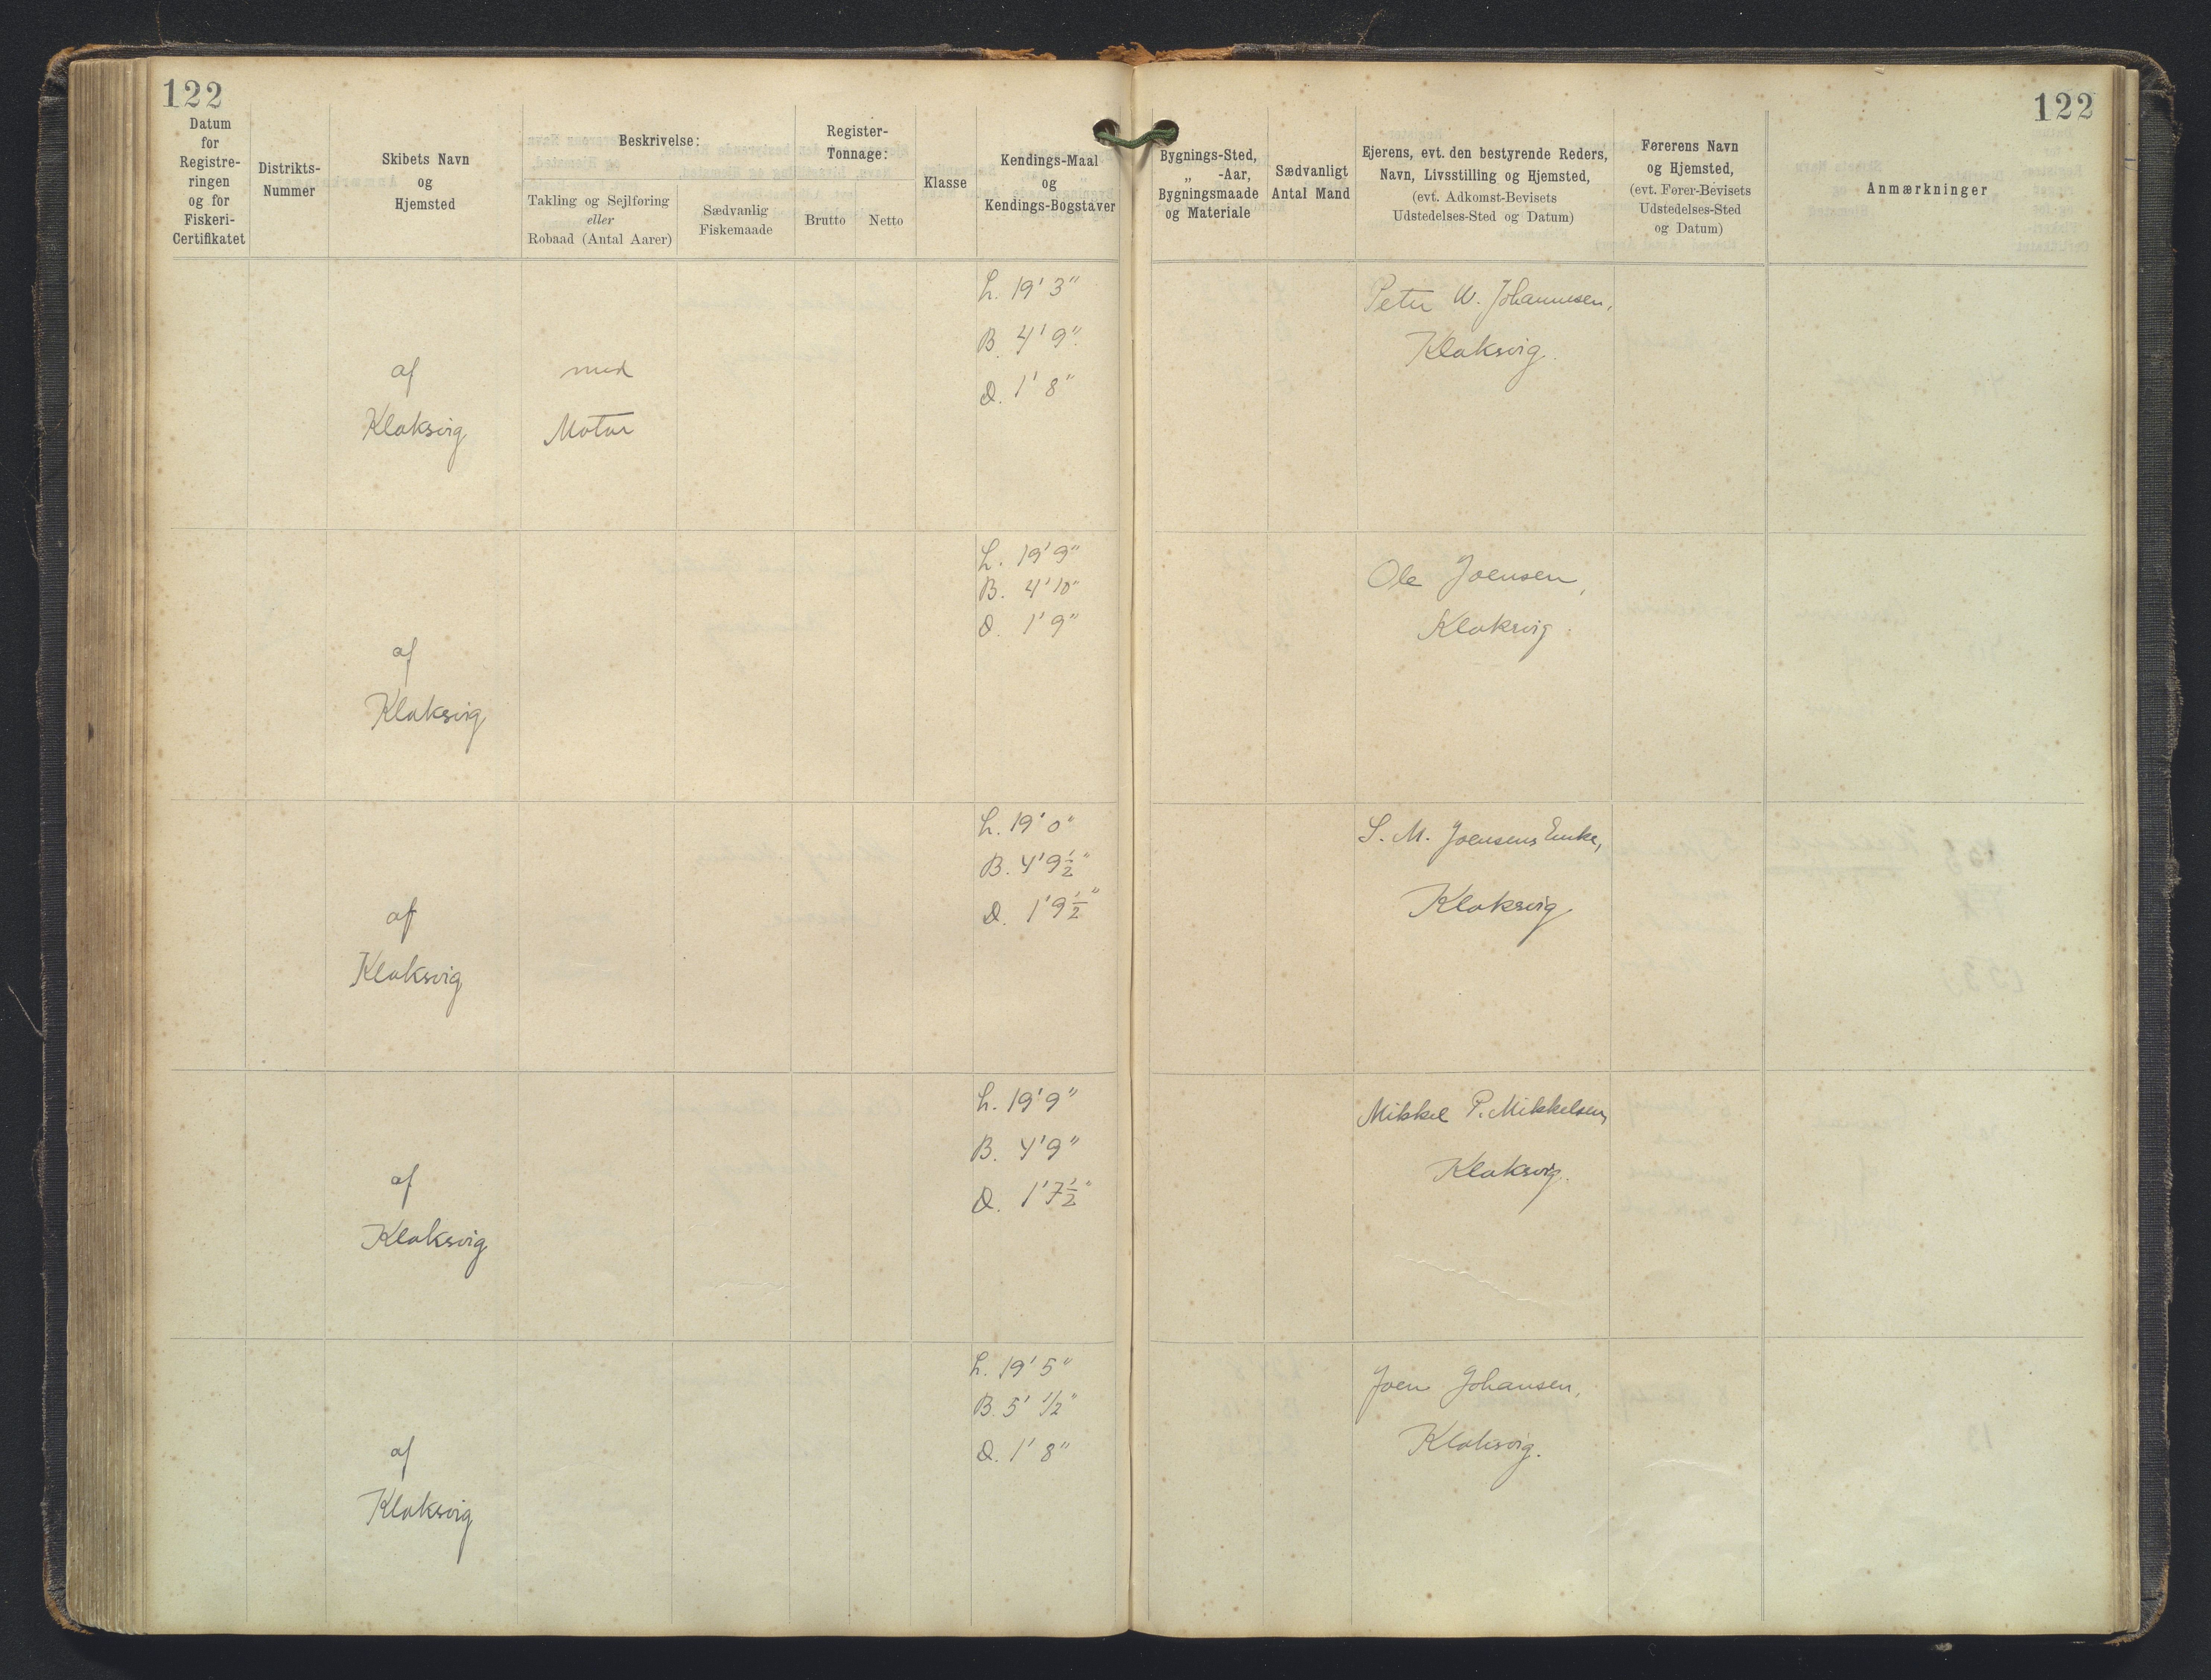 122
122
Datum
for
Registre-
ringen
og for
Fiskeri-
Certifikatet
Distrikts-
Nummer
Skibets Navn
og
Hjemsted
Beskrivelse:
Takling og Sejlføring
eller
Robaad (Antal Aarer)
Sædvanlig
Fiskemaade
Register-
Tonnage:
Brutto
Netto
Klasse
Kendings-Maal
og
Kendings-Bogstaver
Bygnings-Sted,
„ -Aar,
Bygningsmaade
og Materiale
Sædvanligt
Antal Mand
Ejerens, evt. den bestyrende Reders,
Navn, Livsstilling og Hjemsted,
(evt. Adkomst-Bevisets
Udstedelses-Sted og Datum)
Førerens Navn
og Hjemsted,
(evt. Fører-Bevisets
Udstedelses-Sted
og Datum)
Anmærkninger
af
Klaksvig
med
Motor
L. 19' 3"
B. 4' 9"
D. 1' 8"
Peter W. Johannesen,
Klaksvig.
af
Klaksvig
L. 19' 9"
B. 4' 10"
D. 1' 9"
Ole Joensen,
Klaksvig.
af
Klaksvig
L. 19' 0"
B. 4' 9½"
D. 1' 9½"
S. M. Joensens Enke,
Klaksvig
af
Klaksvig
L. 19' 9"
B. 4' 9"
D. 1' 7½"
Mikkel P. Mikkelsen,
Klaksvig.
af
Klaksvig
L. 19' 5"
B. 5' 1/2"
D. 1' 8"
Joen Johansen,
Klaksvig.